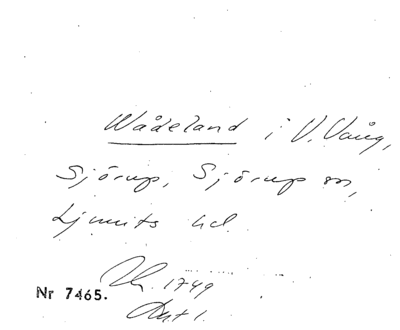 Wådeland i V. Vång,
Sjörup, Sjörup sn,
Ljunits hd.
Nr 7465.
1749
Akt 1.